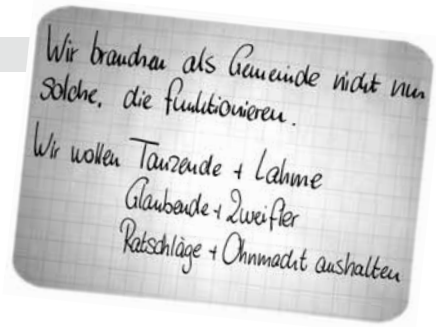 Wir brauchen als Gemeinde nicht nur
solche, die funktionieren.
Wir wollen Tanzende + Lahme
Glaubende + Zweifler
Ratschläge + Ohnmacht aushalten